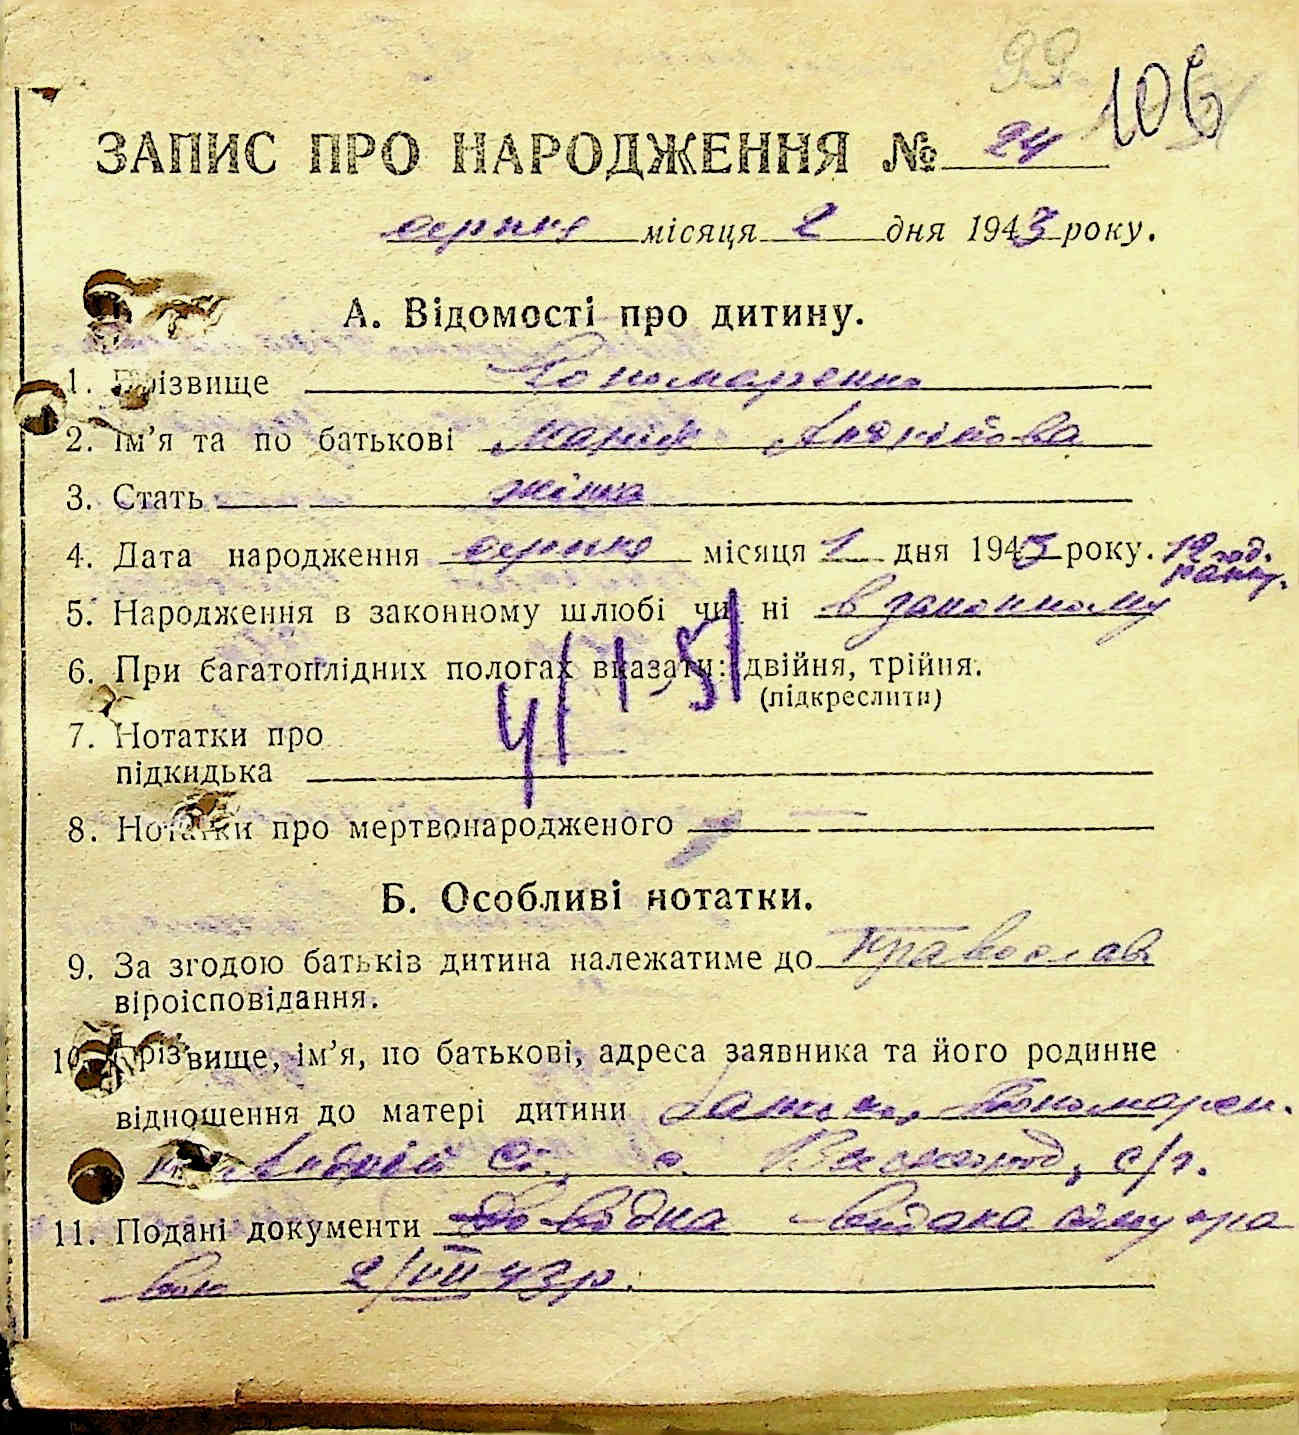 99
106
ЗАПИС ПРО НАРОДЖЕННЯ № 24
серпня місяця 2 дня 1943 року.
А. Відомості про дитину.
1. Прізвище Пономаренко
2. Ім’я та по батькові Марія Андріївна
3. Стать жінка
4. Дата народження серпня місяця 1 дня 1943 року. 12 год. ранку.
5. Народження в законному шлюбі чи ні в законному
6. При багатоплідних пологах вказати: двійня, трійня.
(підкреслити)
4/I-51
7. Нотатки про
підкидька
8. Нотатки про мертвонародженого
Б. Особливі нотатки.
9. За згодою батьків дитина належатиме до православ
віроісповідання.
10. Прізвище, ім’я, по батькові, адреса заявника та його родинне
відношення до матері дитини Батько, Пономарен-
ко Андрій Ст., с. с/г.
11. Подані документи Довідка видана сільупра
вою 2/VII-43р.